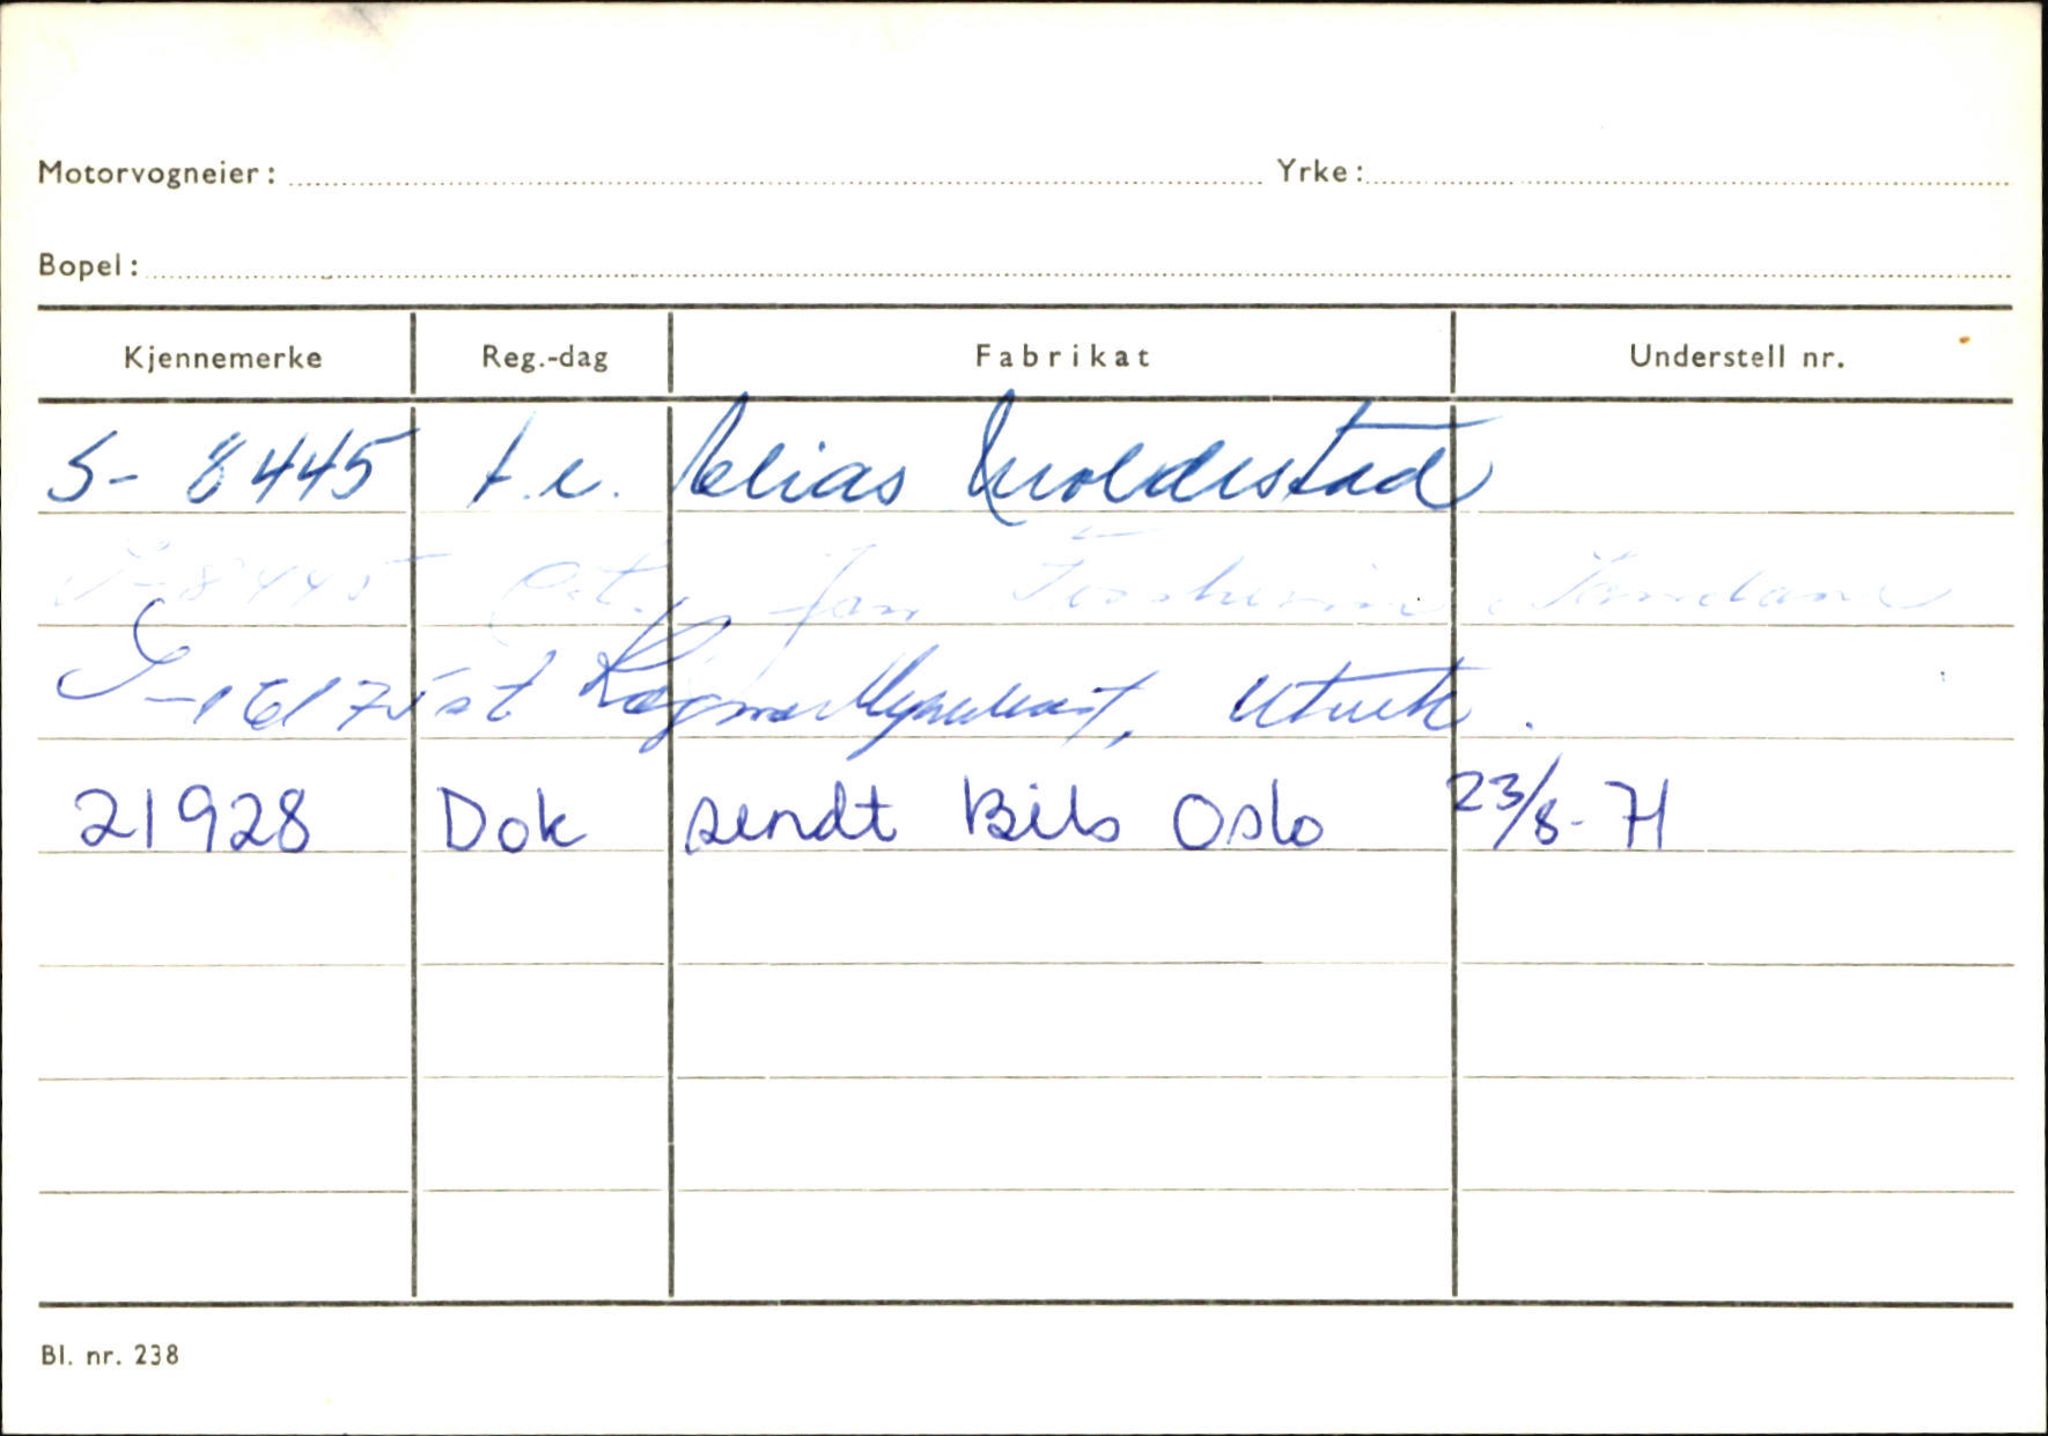 Motorvogneier: Yrke:
Bopel:
Kjennemerke Reg.-dag Fabrikat Understell nr.
S- 8445 t.e. Elias Moldestad
S-8445 Jan
S- st. Ragnar Utvik.
21928 Dok sendt Bils Oslo 23/8-71
Bl. nr. 238